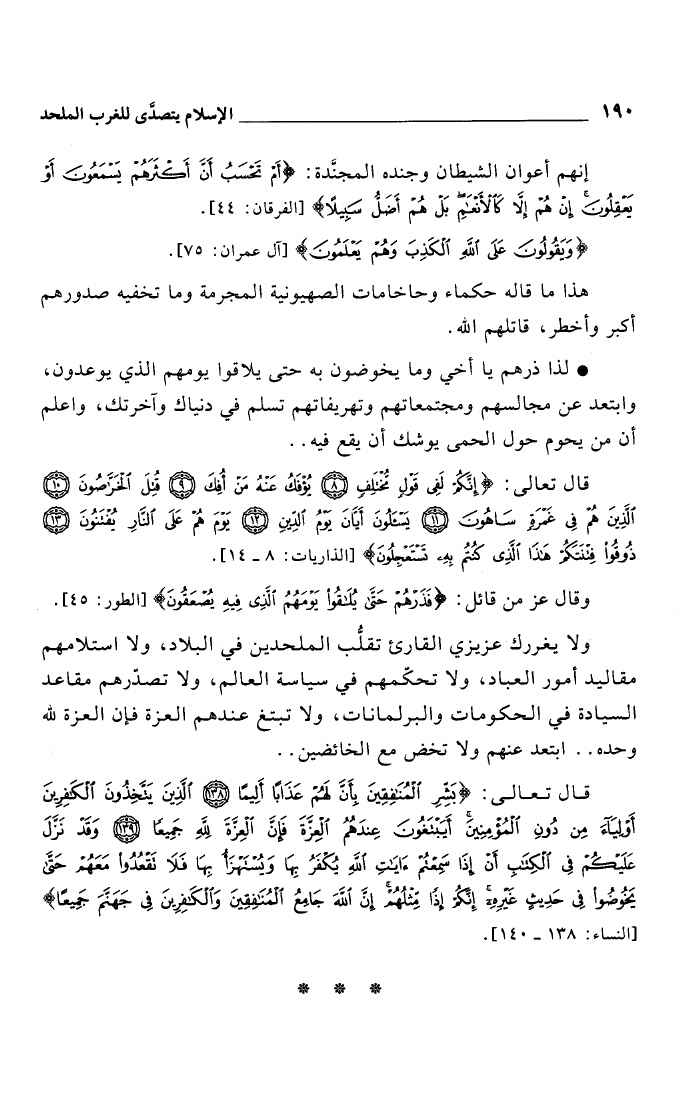 ١٩٠ الإسلام يتصدَّى للغرب الملحد
إنهم أعوان الشيطان وجنده المجنَّدة: ﴿أَمْ تَحْسَبُ أَنَّ أَكْثَرَهُمْ يَسْمَعُونَ أَوْ
يَعْقِلُونَ ۚ إِنْ هُمْ إِلَّا كَالْأَنْعَٰمِ ۖ بَلْ هُمْ أَضَلُّ سَبِيلًا﴾ [الفرقان: ٤٤].
﴿وَيَقُولُونَ عَلَى ٱللَّهِ ٱلْكَذِبَ وَهُمْ يَعْلَمُونَ﴾ [آل عمران: ٧٥].
هذا ما قاله حكماء وحاخامات الصهيونية المجرمة وما تخفيه صدورهم
أكبر وأخطر، قاتلهم الله.
● لذا ذرهم يا أخي وما يخوضون به حتى يلاقوا يومهم الذي يوعدون،
وابتعد عن مجالسهم ومجتمعاتهم وتهريفاتهم تسلم في دنياك وآخرتك، واعلم
أن من يحوم حول الحمى يوشك أن يقع فيه..
قال تعالى: ﴿إِنَّكُمْ لَفِى قَوْلٍ مُّخْتَلِفٍ ٨ يُؤْفَكُ عَنْهُ مَنْ أُفِكَ ٩ قُتِلَ ٱلْخَرَّٰصُونَ ١٠
ٱلَّذِينَ هُمْ فِى غَمْرَةٍ سَاهُونَ ١١ يَسْـَٔلُونَ أَيَّانَ يَوْمُ ٱلدِّينِ ١٢ يَوْمَ هُمْ عَلَى ٱلنَّارِ يُفْتَنُونَ ١٣
ذُوقُوا۟ فِتْنَتَكُمْ هَٰذَا ٱلَّذِى كُنتُم بِهِۦ تَسْتَعْجِلُونَ﴾ [الذاريات: ٨ ـ ١٤].
وقال عز من قائل: ﴿فَذَرْهُمْ حَتَّىٰ يُلَٰقُوا۟ يَوْمَهُمُ ٱلَّذِى فِيهِ يُصْعَقُونَ﴾ [الطور: ٤٥].
ولا يغررك عزيزي القارئ تقلُّب الملحدين في البلاد، ولا استلامهم
مقاليد أمور العباد، ولا تحكّمهم في سياسة العالم، ولا تصدّرهم مقاعد
السيادة في الحكومات والبرلمانات، ولا تبتغ عندهم العزة فإن العزة لله
وحده.. ابتعد عنهم ولا تخض مع الخائضين..
قال تعالى: ﴿بَشِّرِ ٱلْمُنَٰفِقِينَ بِأَنَّ لَهُمْ عَذَابًا أَلِيمًا ١٣٨ ٱلَّذِينَ يَتَّخِذُونَ ٱلْكَٰفِرِينَ
أَوْلِيَآءَ مِن دُونِ ٱلْمُؤْمِنِينَ ۚ أَيَبْتَغُونَ عِندَهُمُ ٱلْعِزَّةَ فَإِنَّ ٱلْعِزَّةَ لِلَّهِ جَمِيعًا ١٣٩ وَقَدْ نَزَّلَ
عَلَيْكُمْ فِى ٱلْكِتَٰبِ أَنْ إِذَا سَمِعْتُمْ ءَايَٰتِ ٱللَّهِ يُكْفَرُ بِهَا وَيُسْتَهْزَأُ بِهَا فَلَا تَقْعُدُوا۟ مَعَهُمْ حَتَّىٰ
يَخُوضُوا۟ فِى حَدِيثٍ غَيْرِهِۦٓ ۚ إِنَّكُمْ إِذًا مِّثْلُهُمْ ۗ إِنَّ ٱللَّهَ جَامِعُ ٱلْمُنَٰفِقِينَ وَٱلْكَٰفِرِينَ فِى جَهَنَّمَ جَمِيعًا﴾
[النساء: ١٣٨ ـ ١٤٠].
* * *